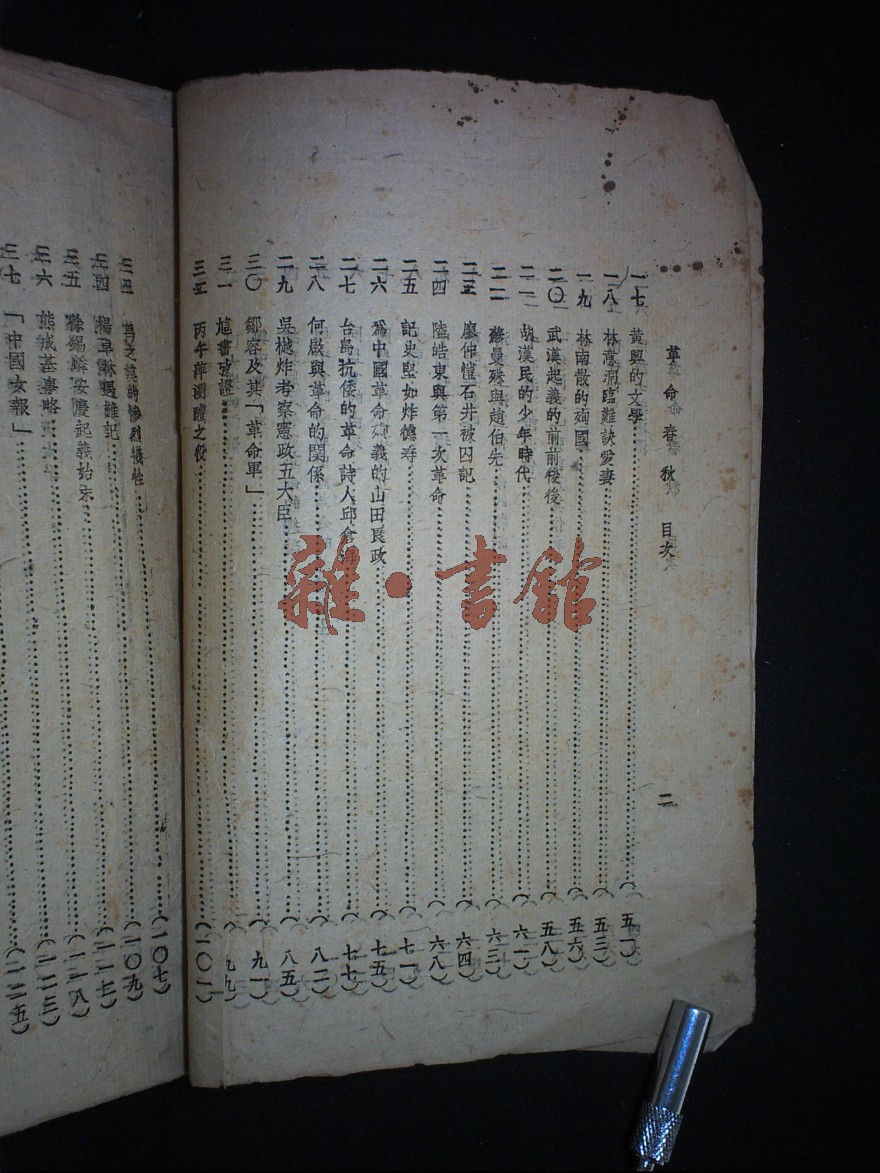 革命春秋 目次 二
一七 黃興的文學 (五一)
一八 林意洞臨難訣愛妻 (五三)
一九 林南散的殉國 (五六)
二〇 武漢起義的前前後後 (五八)
二一 胡漢民的少年時代 (六一)
二二 蘇曼殊與趙伯先 (六三)
二三 廖仲愷石井被囚記 (六四)
二四 陸皓東與第一次革命 (六八)
二五 記史堅如炸德壽 (七一)
二六 爲中國革命殉義的山田良政 (七五)
二七 台島抗倭的革命詩人邱倉 (七七)
二八 何啟與革命的關係 (八二)
二九 吳樾炸考察憲政五大臣 (八五)
三〇 鄒容及其「革命軍」 (九一)
三一 訄書攷證 (九九)
三二 丙午萍瀏醴之役 (一〇一)
的慘烈犧牲 (一〇七)
三四 楊卓林遇難記 (一〇九)
三五 徐錫麟安慶起義始末
三六 熊成基事略
三七 「中國女報」 (一二五)
雜·書館